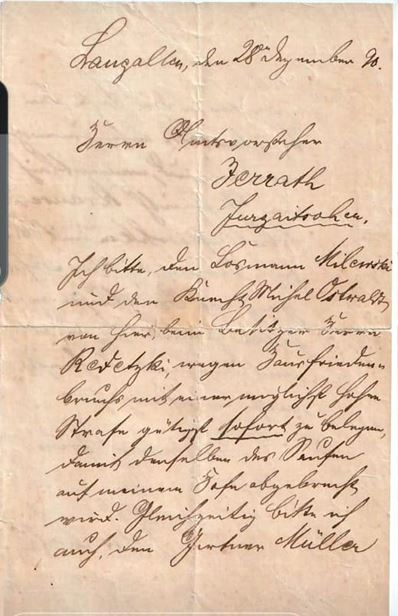 Langallen, den 28ten Dezember 90.
Herrn Amtsvorsteher
Ferrath
Jurgaitschen.
Ich bitte, den Losmann Milewski
und den Knecht Michel Ostwald
von hier, beim Besitzer Herrn
Redetzki wegen Hausfrieden-
bruchs mit einer möglichst hohen
Strafe gütigst sofort zu belegen,
damit denselben das Saufen
auf meinem Hofe abgebracht
wird. Gleichzeitig bitte ich
auch, den Gärtner Müller